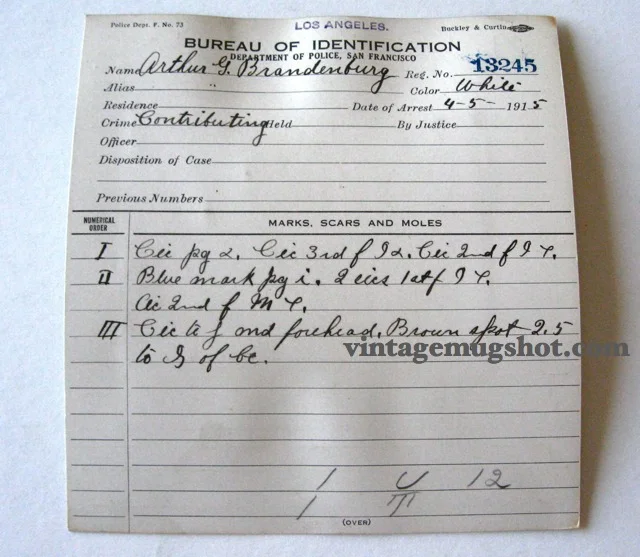 Police Dept. F. No. 73 LOS ANGELES. Buckley & Curtin
BUREAU OF IDENTIFICATION
DEPARTMENT OF POLICE, SAN FRANCISCO
Name Arthur G. Brandenburg Reg. No. 13245
Alias Color White
Residence Date of Arrest 4-5- 1915
Crime Contributing Held By Justice
Officer
Disposition of Case
Previous Numbers
NUMERICAL ORDER MARKS, SCARS AND MOLES
I Cic pg 2. Cic 3rd f I 2. Cic 2nd f I
II Blue mark pg i. 2 cics 1st f I
Cic 2nd f M
III Cic forehead. Brown spot 2.5
to of bc.
vintagemugshot.com
1 U 12
1
(OVER)